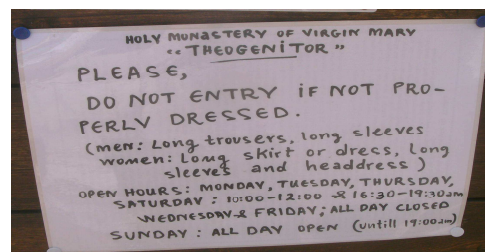 HOLY MONASTERY OF VIRGIN MARY
"THEOGENITOR"
PLEASE,
DO NOT ENTRY IF NOT PRO-
PERLY DRESSED.
(men: Long trousers, long sleeves
women: Long skirt or dress, long
sleeves and headdress)
OPEN HOURS: MONDAY, TUESDAY, THURSDAY,
SATURDAY: 10:00-12:00 & 16:30-19:30
WEDNESDAY & FRIDAY; ALL DAY CLOSED
SUNDAY: ALL DAY OPEN (untill 19:00